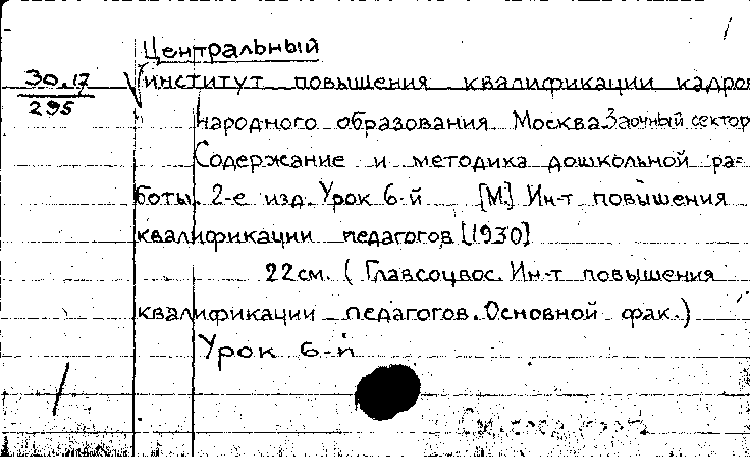 Центральный
30.17
295
институт повышения квалификации кадров
народного образования Москва Заочный сектор
Содержание и методика дошкольной ра-
боты. 2-е изд. Урок 6-й [М.] Ин-т повышения
квалификации педагогов [1930]
22см. (Главсоцвос. Ин-т повышения
квалификации педагогов. Основной фак.)
Урок 6-й
См.